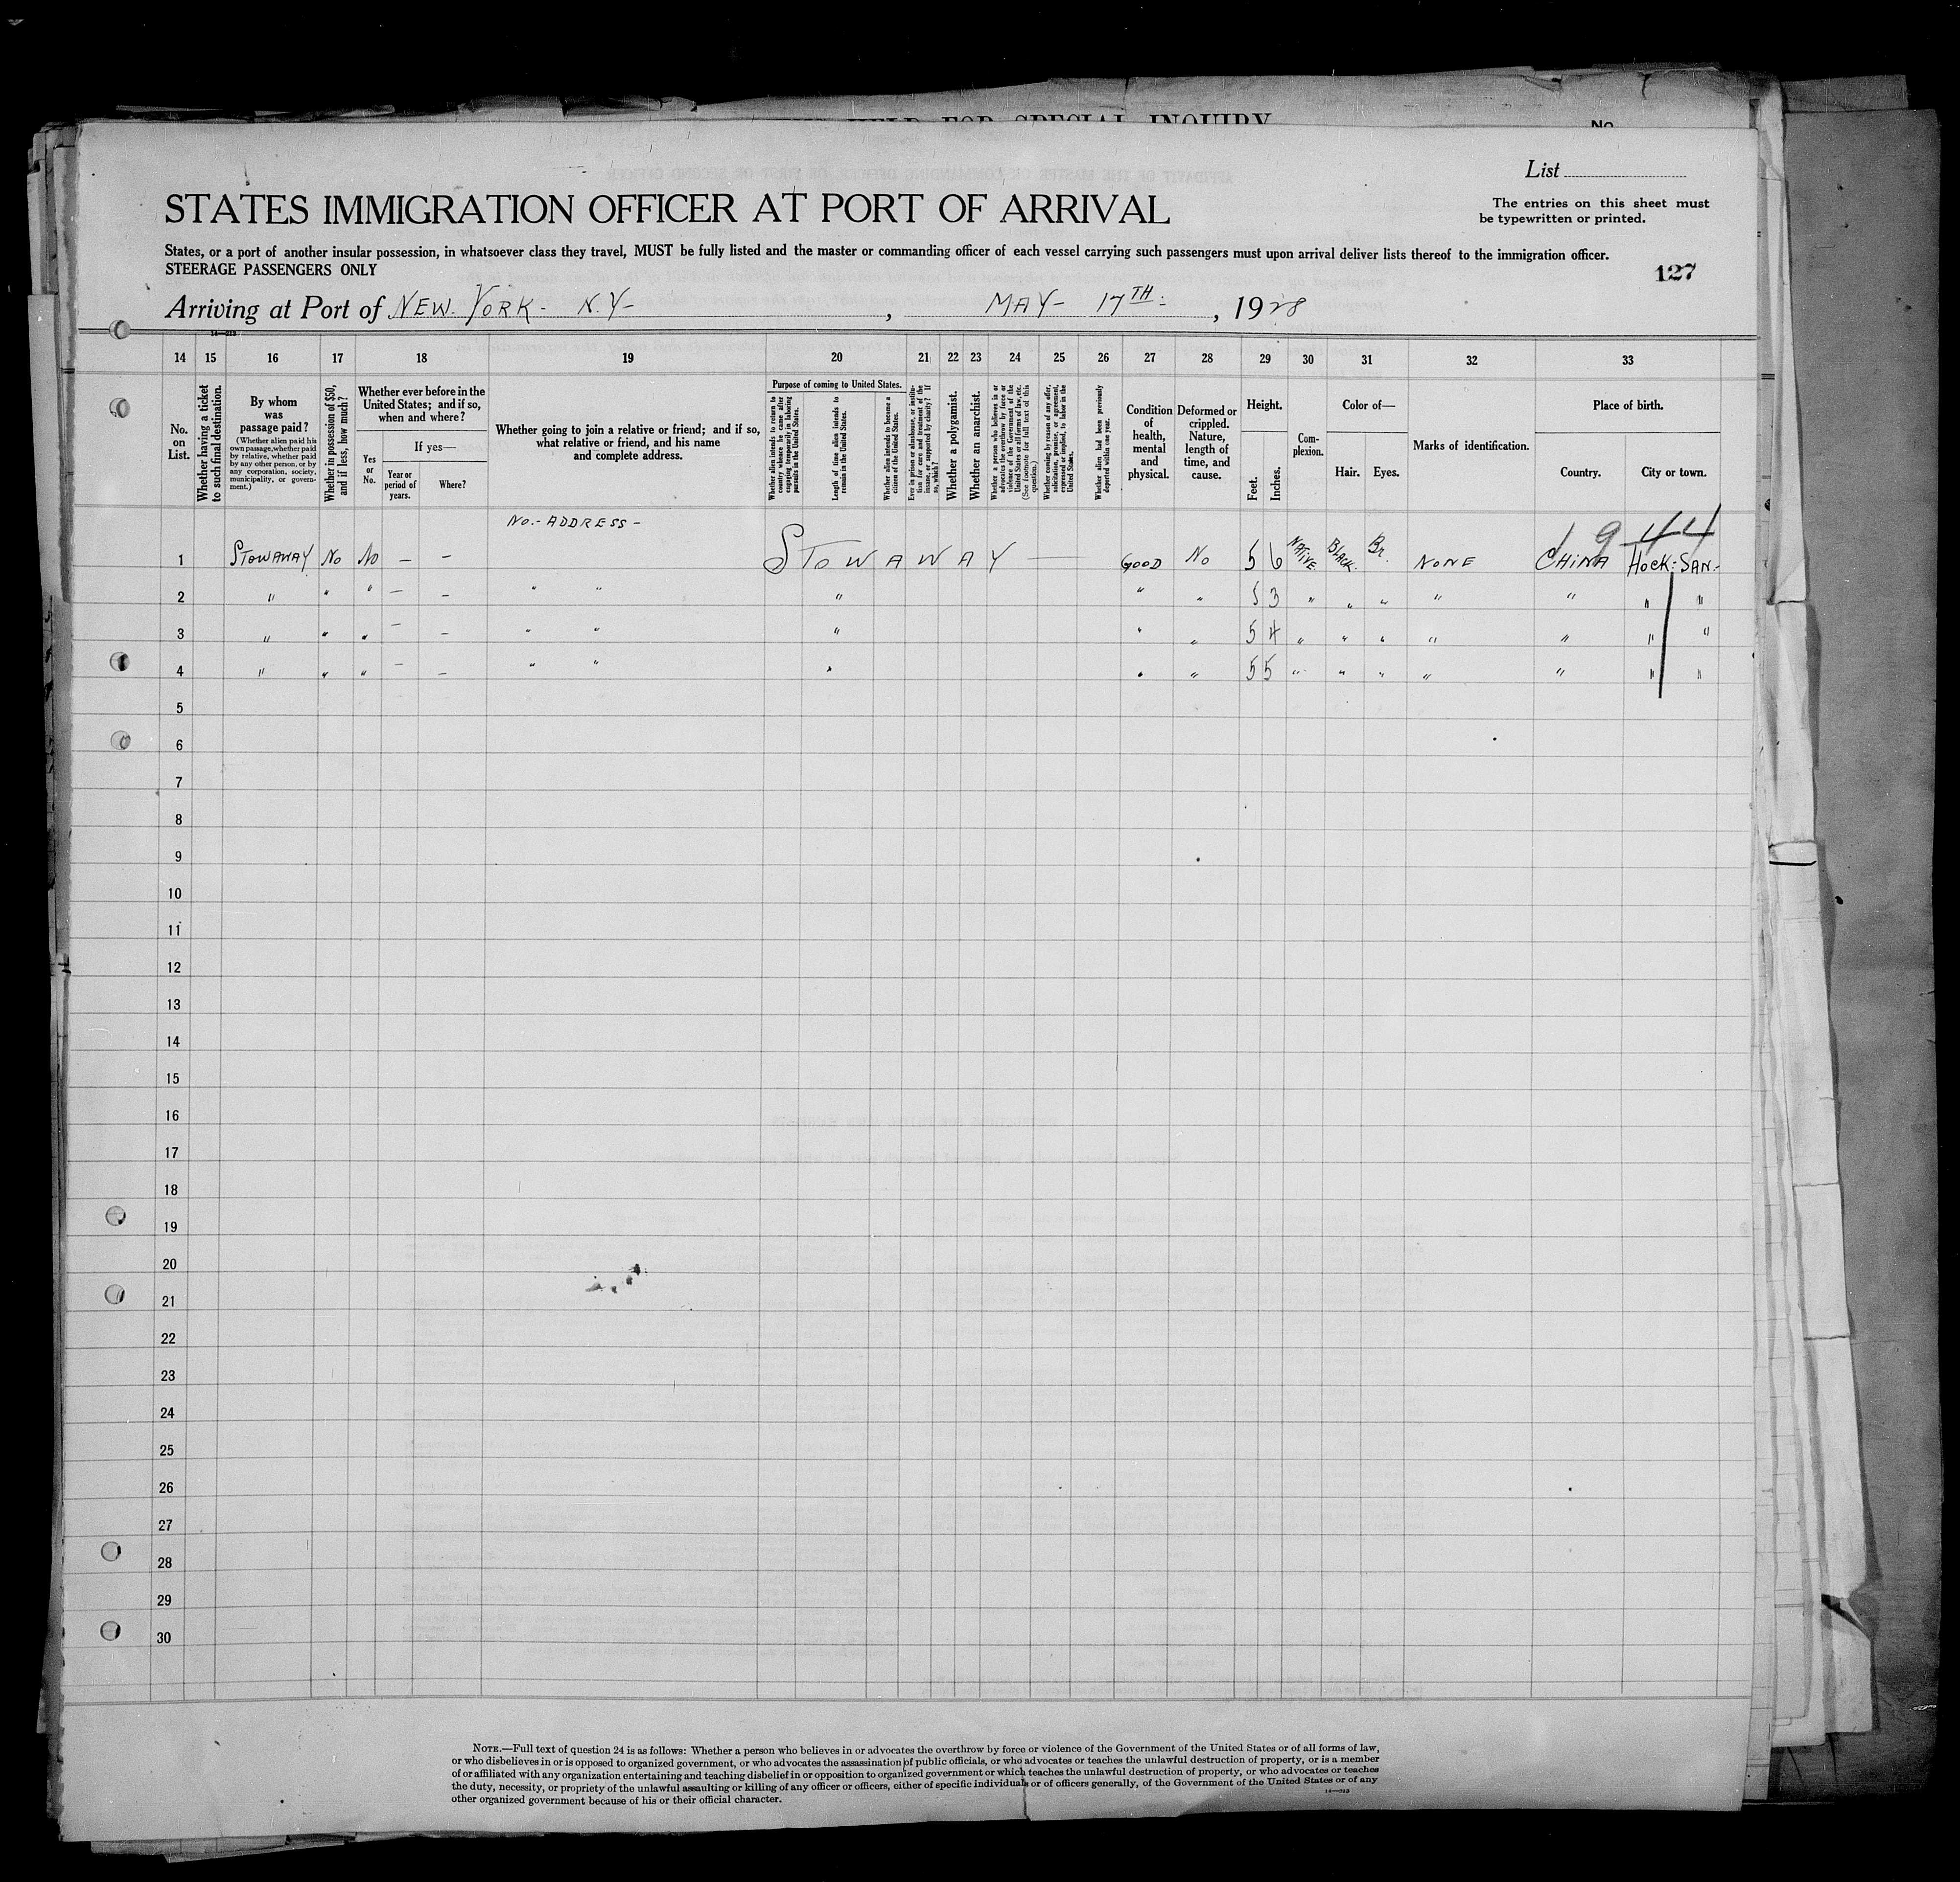 HELD FOR SPECIAL INQUIRY
No
List
STATES IMMIGRATION OFFICER AT PORT OF ARRIVAL
The entries on this sheet must
be typewritten or printed.
States, or a port of another insular possession, in whatsoever class they travel, MUST be fully listed and the master or commanding officer of each vessel carrying such passengers must upon arrival deliver lists thereof to the immigration officer.
STEERAGE PASSENGERS ONLY
127
Arriving at Port of NEW. YORK - N.Y- , MAY- 17TH: , 1928
14 15 16 17 18 19 20 21 22 23 24 25 26 27 28 29 30 31 32 33
No. on List.
Whether having a ticket to such final destination.
By whom was passage paid?
(Whether alien paid his own passage, whether paid by relative, whether paid by any other person, or by any corporation, society, municipality, or government.)
Whether in possession of $50, and if less, how much?
Whether ever before in the United States; and if so, when and where?
Yes or No.
If yes—
Year or period of years.
Where?
Whether going to join a relative or friend; and if so, what relative or friend, and his name and complete address.
Purpose of coming to United States.
Whether alien intends to return to country whence he came after engaging temporarily in laboring pursuits in the United States.
Length of time alien intends to remain in the United States.
Whether alien intends to become a citizen of the United States.
Ever in prison or almshouse, or institution for care and treatment of the insane, or supported by charity? If so, which?
Whether a polygamist.
Whether an anarchist.
Whether a person who believes in or advocates the overthrow by force or violence of the Government of the United States or all forms of law, etc. (See footnote for full text of this question.)
Whether coming by reason of any offer, solicitation, promise, or agreement, expressed or implied, to labor in the United States.
Whether alien had been previously deported within one year.
Condition of health, mental and physical.
Deformed or crippled. Nature, length of time, and cause.
Height.
Feet.
Inches.
Com-plexion.
Color of—
Hair.
Eyes.
Marks of identification.
Place of birth.
Country.
City or town.
No.- ADDRESS -
1 STOWAWAY No No — — STOWAWAY — GOOD No 5 6 NATIVE. BLACK. Br. NONE CHINA HOCK: SAN.-
2 " " " — — " " " " " 5 3 " " " " " " "
3 " " " — — " " " " " 5 4 " " " " " " "
4 " " " — — " " " " " 5 5 " " " " " " "
5
6
7
8
9
10
11
12
13
14
15
16
17
18
19
20
21
22
23
24
25
26
27
28
29
30
NOTE.—Full text of question 24 is as follows: Whether a person who believes in or advocates the overthrow by force or violence of the Government of the United States or of all forms of law,
or who disbelieves in or is opposed to organized government, or who advocates the assassination of public officials, or who advocates or teaches the unlawful destruction of property, or is a member
of or affiliated with any organization entertaining and teaching disbelief in or opposition to organized government or which teaches the unlawful destruction of property, or who advocates or teaches
the duty, necessity, or propriety of the unlawful assaulting or killing of any officer or officers, either of specific individuals or of officers generally, of the Government of the United States or of any
other organized government because of his or their official character.